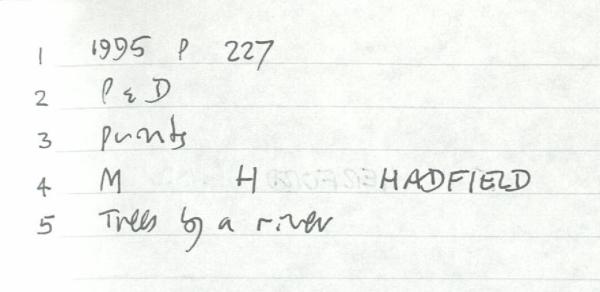 1 1995 P 227
2 P & D
3 prints
4 M H HADFIELD
5 Trees by a river